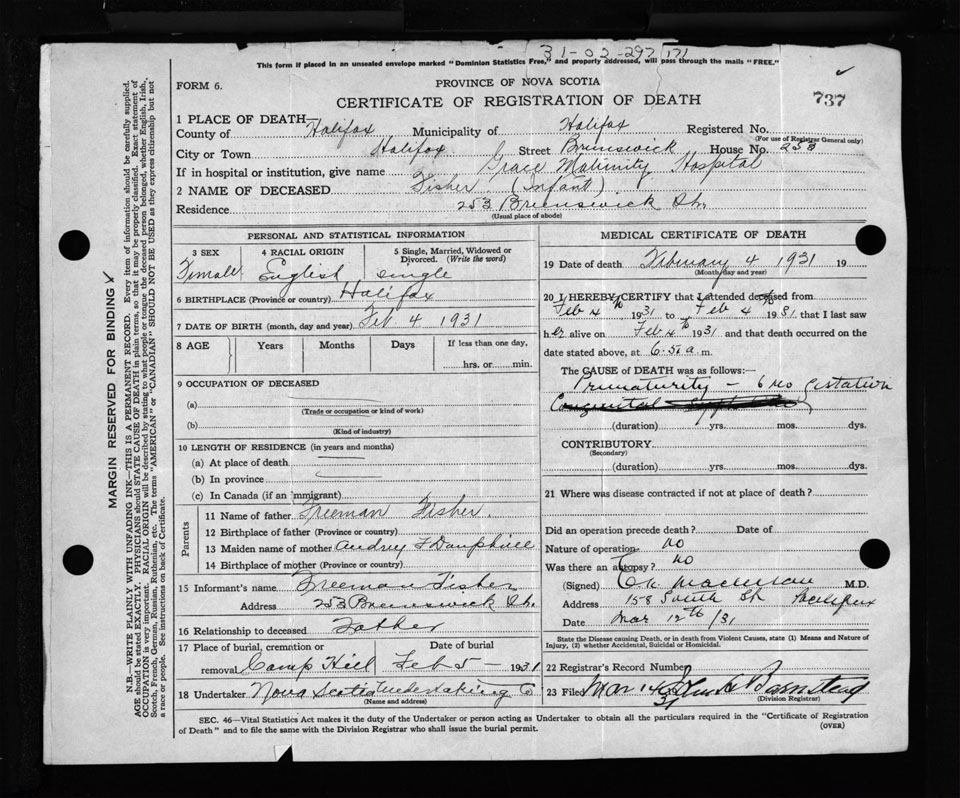 31-02-297171
This form if placed in an unsealed envelope marked "Dominion Statistics Free," and properly addressed, will pass through the mails "FREE."
FORM 6.
PROVINCE OF NOVA SCOTIA
CERTIFICATE OF REGISTRATION OF DEATH
737
1 PLACE OF DEATH
County of Halifax Municipality of Halifax Registered No.
(For use of Registrar General only)
City or Town Halifax Street Brunswick House No. 258
If in hospital or institution, give name Grace Maternity Hospital
2 NAME OF DECEASED Fisher (Infant)
Residence 253 Brunswick St.
(Usual place of abode)
PERSONAL AND STATISTICAL INFORMATION
3 SEX 4 RACIAL ORIGIN 5 Single, Married, Widowed or Divorced. (Write the word)
Female English single
6 BIRTHPLACE (Province or country) Halifax
7 DATE OF BIRTH (month, day and year) Feb 4 1931
8 AGE Years Months Days If less than one day,
hrs. or min.
9 OCCUPATION OF DECEASED
(a)
(Trade or occupation or kind of work)
(b)
(Kind of industry)
10 LENGTH OF RESIDENCE (in years and months)
(a) At place of death
(b) In province
(c) In Canada (if an immigrant)
Parents
11 Name of father Freeman Fisher.
12 Birthplace of father (Province or country)
13 Maiden name of mother Audrey F Dauphiee
14 Birthplace of mother (Province or country)
15 Informant's name Freeman Fisher
Address 253 Brunswick St.
16 Relationship to deceased Father
17 Place of burial, cremation or removal Date of burial
Camp Hill Feb 5 - 1931
18 Undertaker Nova Scotia Undertaking Co
(Name and address)
MEDICAL CERTIFICATE OF DEATH
19 Date of death February 4 1931 19
(Month, day and year)
20 I HEREBY CERTIFY that I attended deceased from
Feb 4th 1931 to Feb 4th 1931 that I last saw
her alive on Feb 4th 1931 and that death occurred on the
date stated above, at 6.50 a.m.
The CAUSE of DEATH was as follows:—
Prematurity - 6 mo gestation
Congenital
(duration) yrs. mos. dys.
CONTRIBUTORY
(Secondary)
(duration) yrs. mos. dys.
21 Where was disease contracted if not at place of death?
Did an operation precede death? Date of
Nature of operation no
Was there an autopsy? no
(Signed) M.D.
Address 158 South St Halifax
Date Mar 12th/31
State the Disease causing Death, or in death from Violent Causes, state (1) Means and Nature of Injury, (ii) whether Accidental, Suicidal or Homicidal.
22 Registrar's Record Number
23 Filed Mar 14 31 Barnstead
(Division Registrar)
SEC. 46—Vital Statistics Act makes it the duty of the Undertaker or person acting as Undertaker to obtain all the particulars required in the "Certificate of Registration
of Death" and to file the same with the Division Registrar who shall issue the burial permit.
(OVER)
MARGIN RESERVED FOR BINDING
N.B.—WRITE PLAINLY WITH UNFADING INK—THIS IS A PERMANENT RECORD. Every item of information should be carefully supplied.
AGE should be stated EXACTLY. PHYSICIANS should STATE CAUSE OF DEATH in plain terms, so that it may be properly classified. Exact statement of
OCCUPATION is very important. RACIAL ORIGIN will be described by stating to what people or tongue the deceased person belonged, whether English, Irish,
Scotch, French, German, Russian, Ruthenian, etc. The terms "AMERICAN" or "CANADIAN" SHOULD NOT BE USED as they express citizenship but not
a race or people. See instructions on back of Certificate.